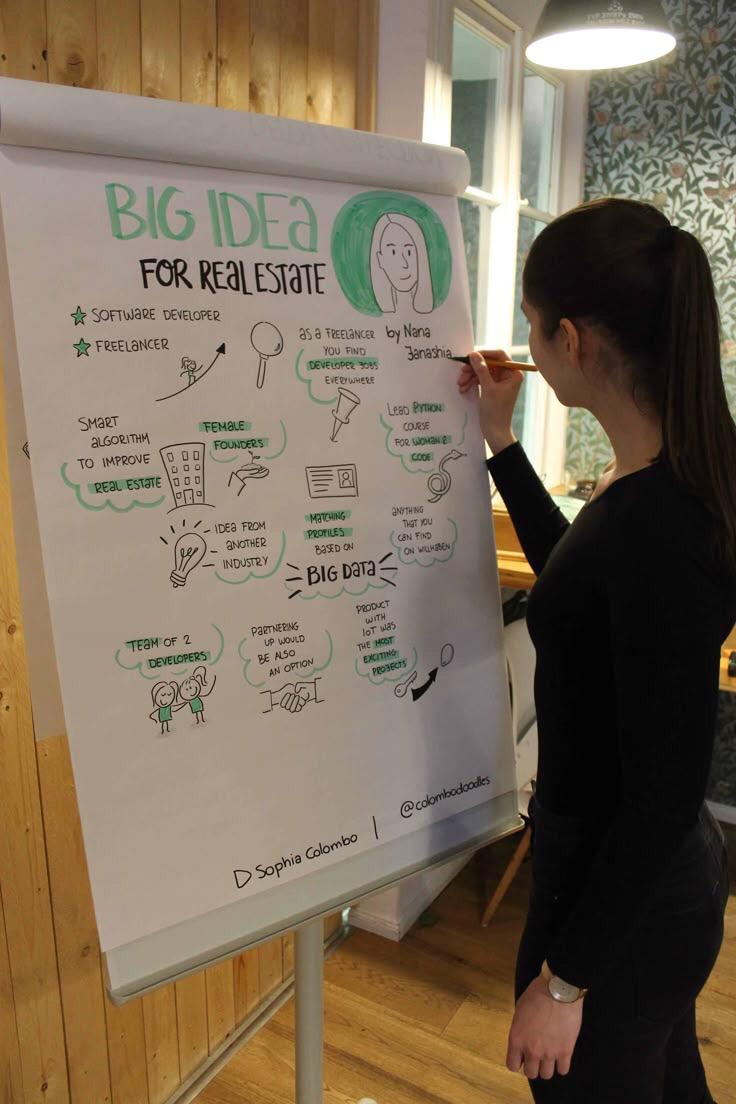 BIG IDEA
FOR REAL ESTATE
SOFTWARE DEVELOPER
FREELANCER
AS A FREELANCER
YOU FIND
DEVELOPER JOBS
EVERYWHERE
by Nana
Janashia
SMART
ALGORITHM
TO IMPROVE
REAL ESTATE
FEMALE
FOUNDERS
LEAD PYTHON
COURSE
FOR WOMAN &
CODE
IDEA FROM
ANOTHER
INDUSTRY
MATCHING
PROFILES
BASED ON
BIG DATA
ANYTHING
THAT YOU
CAN FIND
ON WILLHABEN
TEAM OF 2
DEVELOPERS
PARTNERING
UP WOULD
BE ALSO
AN OPTION
PRODUCT
WITH
IoT WAS
THE MOST
EXCITING
PROJECTS
Sophia Colombo |
@colombodoodles